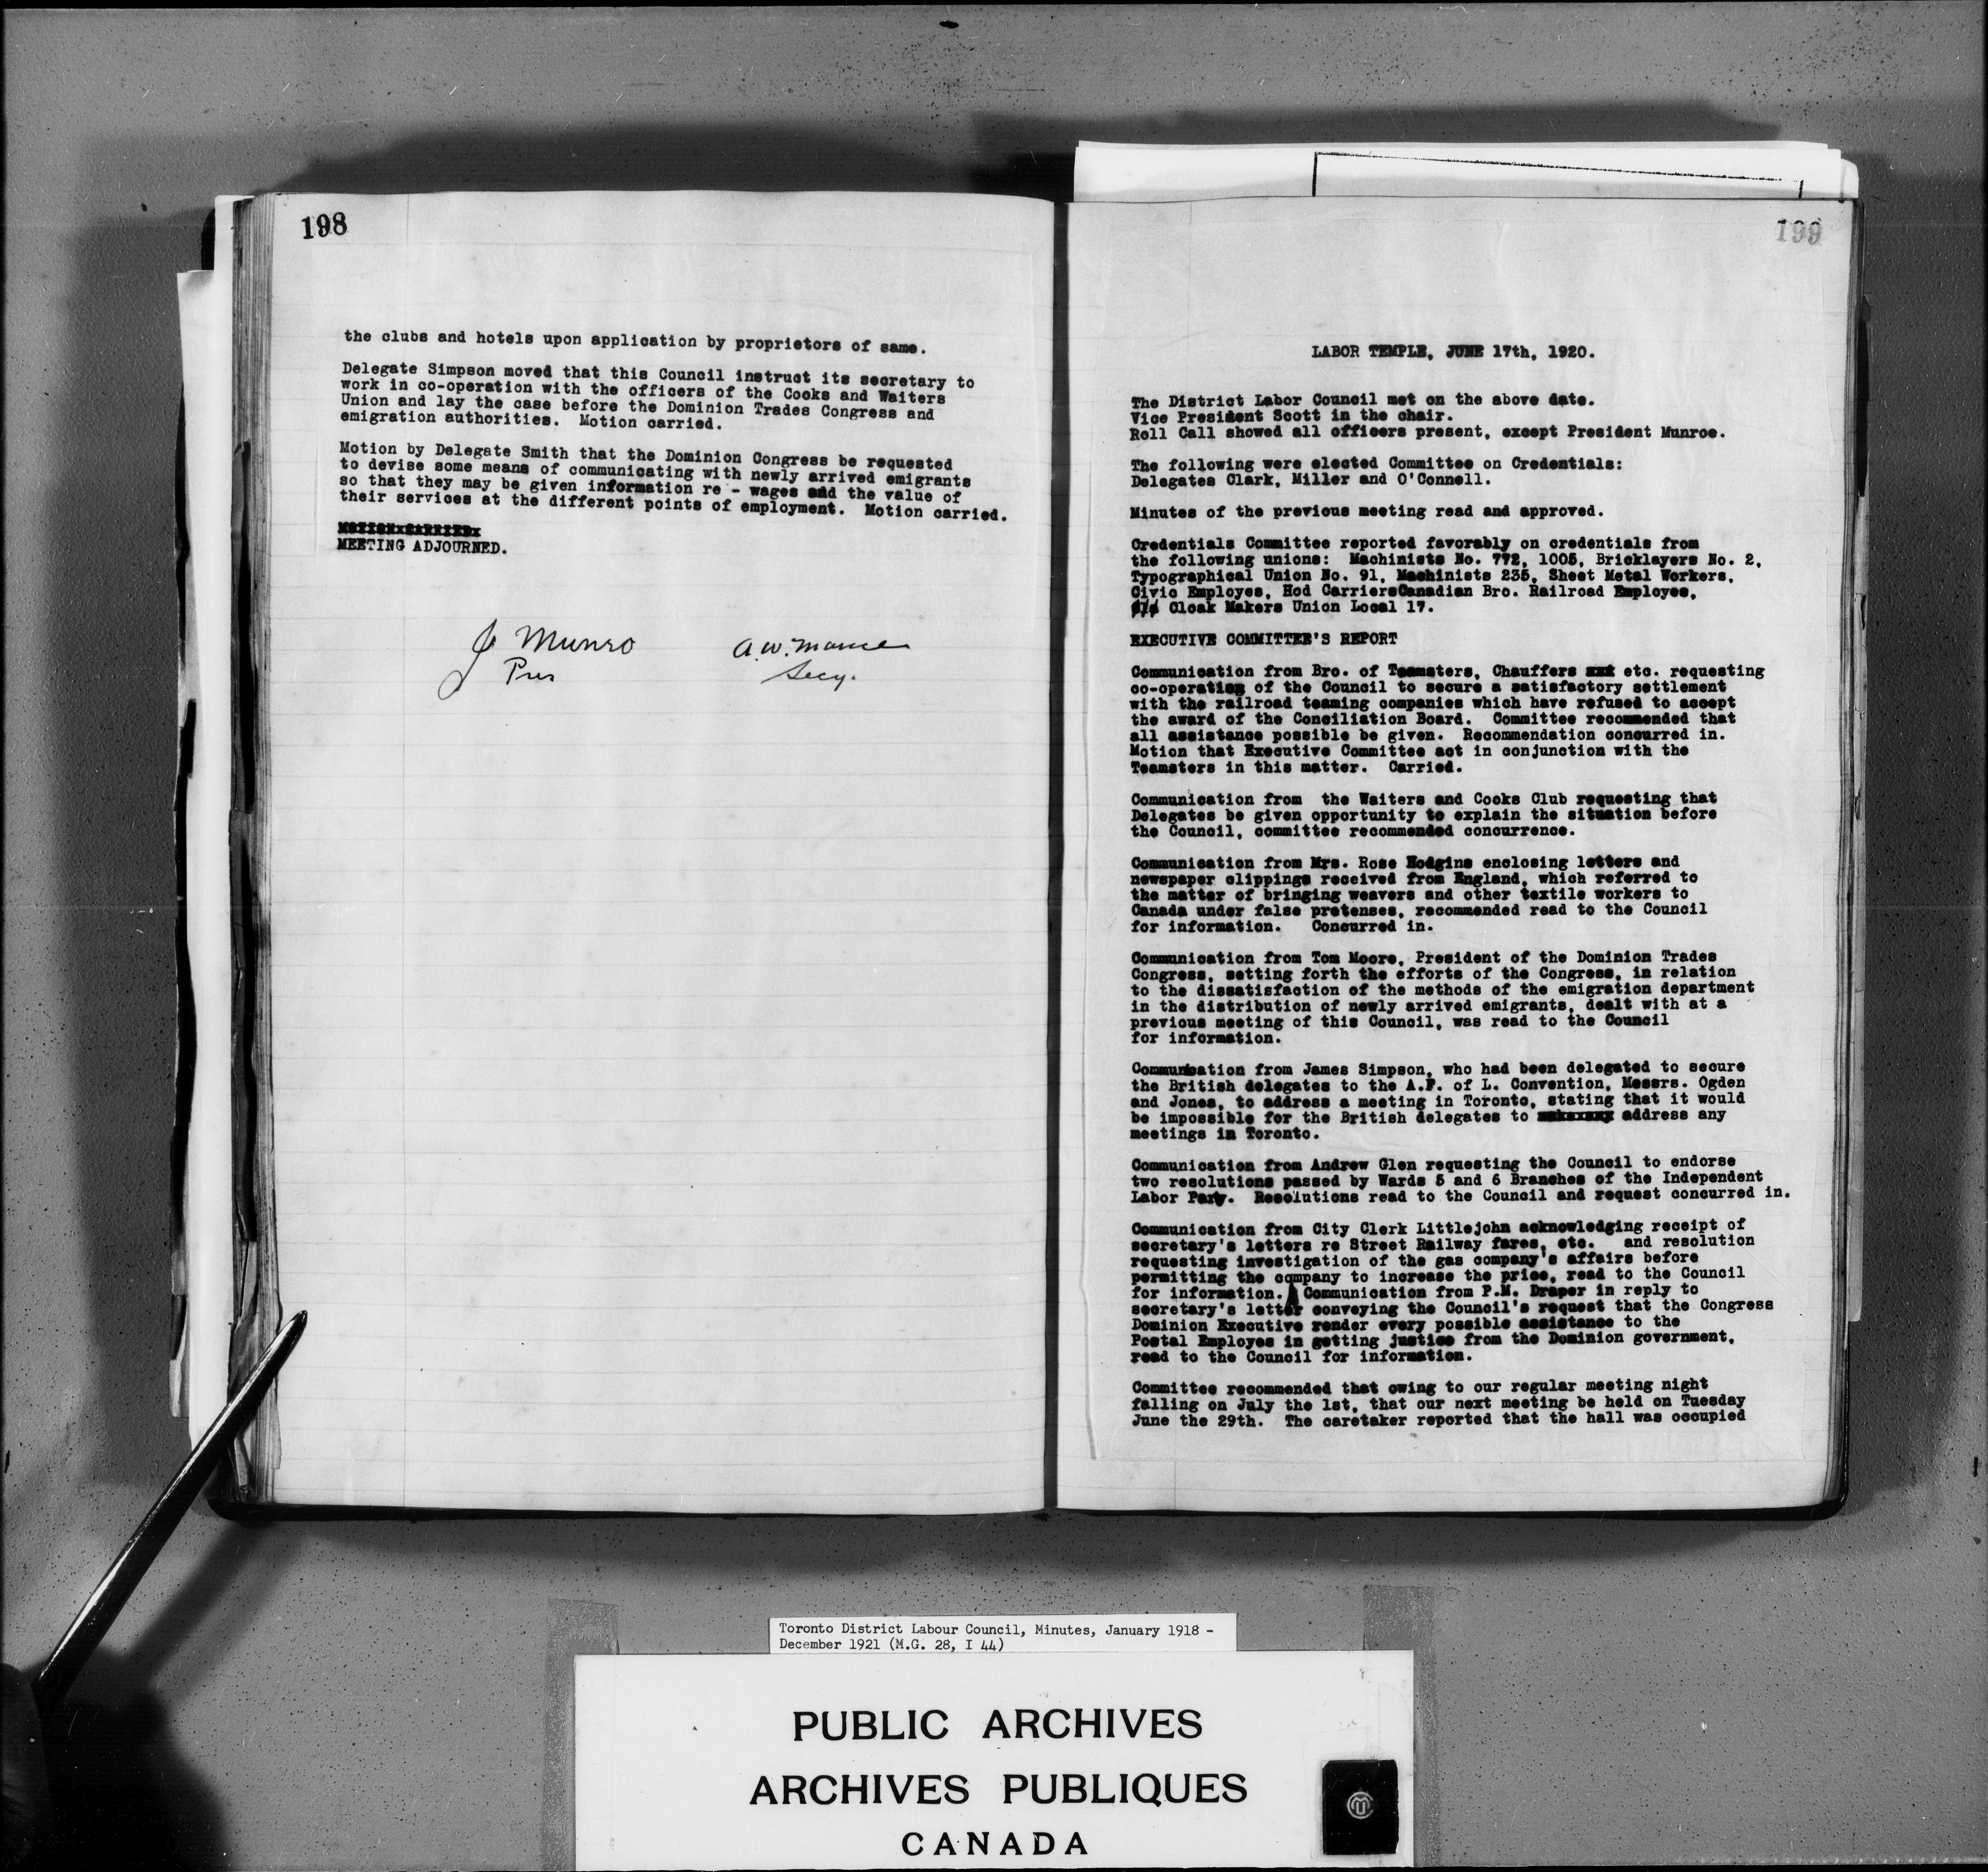 198
the clubs and hotels upon application by proprietors of same.
Delegate Simpson moved that this Council instruct its secretary to
work in co-operation with the officers of the Cooks and Waiters
Union and lay the case before the Dominion Trades Congress and
emigration authorities. Motion carried.
Motion by Delegate Smith that the Dominion Congress be requested
to devise some means of communicating with newly arrived emigrants
so that they may be given information re - wages and the value of
their services at the different points of employment. Motion carried.
MOTION CARRIED
MEETING ADJOURNED.
J Munro
Pres
A.W. 
Secy.
199
LABOR TEMPLE, JUNE 17th, 1920.
The District Labor Council met on the above date.
Vice President Scott in the chair.
Roll Call showed all officers present, except President Munroe.
The following were elected Committee on Credentials:
Delegates Clark, Miller and O'Connell.
Minutes of the previous meeting read and approved.
Credentials Committee reported favorably on credentials from
the following unions: Machinists No. 772, 1005, Bricklayers No. 2,
Typographical Union No. 91, Machinists 235, Sheet Metal Workers,
Civic Employes, Hod CarriersCanadian Bro. Railroad Employes,
Cloak Makers Union Local 17.
EXECUTIVE COMMITTEE'S REPORT
Communication from Bro. of Teamsters, Chauffers etc. requesting
co-operation of the Council to secure a satisfactory settlement
with the railroad teaming companies which have refused to accept
the award of the Conciliation Board. Committee recommended that
all assistance possible be given. Recommendation concurred in.
Motion that Executive Committee act in conjunction with the
Teamsters in this matter. Carried.
Communication from the Waiters and Cooks Club requesting that
Delegates be given opportunity to explain the situation before
the Council, committee recommended concurrence.
Communication from Mrs. Rose Hodgins enclosing letters and
newspaper clippings received from England, which referred to
the matter of bringing weavers and other textile workers to
Canada under false pretenses, recommended read to the Council
for information. Concurred in.
Communication from Tom Moore, President of the Dominion Trades
Congress, setting forth the efforts of the Congress, in relation
to the dissatisfaction of the methods of the emigration department
in the distribution of newly arrived emigrants, dealt with at a
previous meeting of this Council, was read to the Council
for information.
Communication from James Simpson, who had been delegated to secure
the British delegates to the A.F. of L. Convention, Messrs. Ogden
and Jones, to address a meeting in Toronto, stating that it would
be impossible for the British delegates to address any
meetings in Toronto.
Communication from Andrew Glen requesting the Council to endorse
two resolutions passed by Wards 5 and 6 Branches of the Independent
Labor Party. Resolutions read to the Council and request concurred in.
Communication from City Clerk Littlejohn acknowledging receipt of
secretary's letters re Street Railway fares, etc. and resolution
requesting investigation of the gas company's affairs before
permitting the company to increase the price, read to the Council
for information. Communication from P.M. Draper in reply to
secretary's letter conveying the Council's request that the Congress
Dominion Executive render every possible assistance to the
Postal Employes in getting justice from the Dominion government,
read to the Council for information.
Committee recommended that owing to our regular meeting night
falling on July the 1st, that our next meeting be held on Tuesday
June the 29th. The caretaker reported that the hall was occupied
Toronto District Labour Council, Minutes, January 1918 -
December 1921 (M.G. 28, I 44)
PUBLIC ARCHIVES
ARCHIVES PUBLIQUES
CANADA